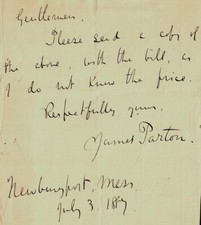 Gentlemen.
Please send a copy of
the above, with the bill, as
I do not know the price.
Respectfully yours,
James Parton.
Newburyport, Mass.
July 3,